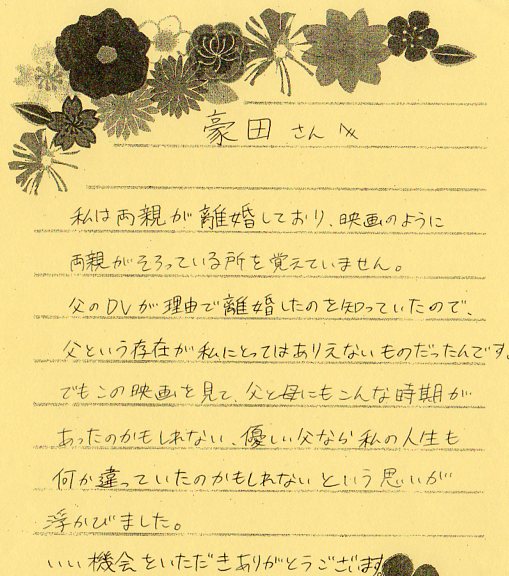 豪田さんへ
私は両親が離婚しており、映画のように
両親がそろっている所を覚えていません。
父のDVが理由で離婚したのを知っていたので、
父という存在が私にとってはありえないものだったんです。
でもこの映画を見て、父と母にもこんな時期が
あったのかもしれない、優しい父なら私の人生も
何か違っていたのかもしれないという思いが
浮かびました。
いい機会をいただきありがとうございます。